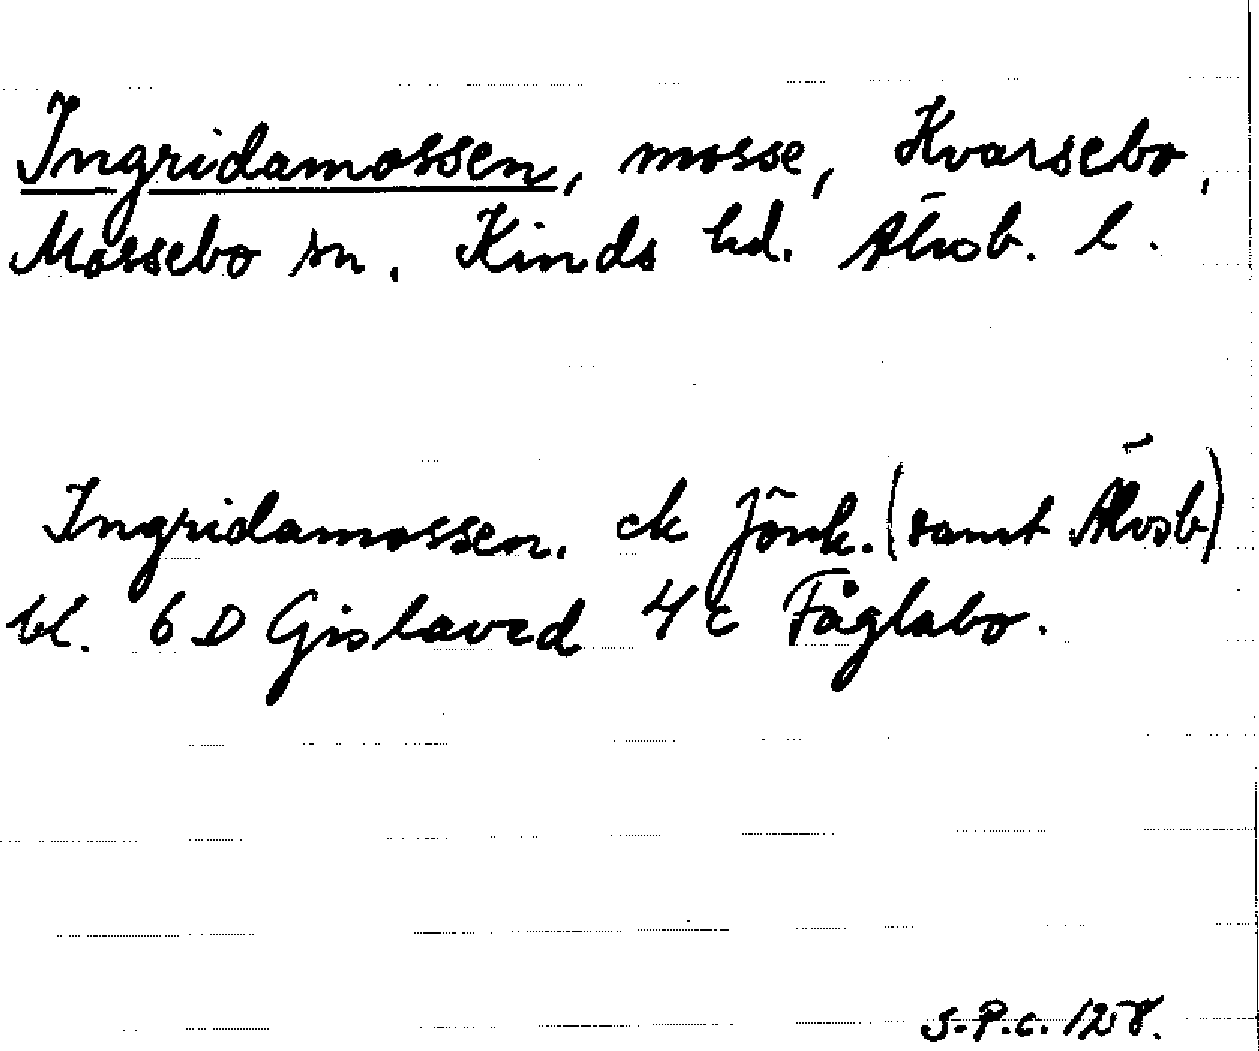 Ingridamossen, mosse, Kvarsebo,
Mossebo sn. Kinds hd. Älvsb. l.
Ingridamossen. ek Jönk. (samt Älvsb)
bl. 6 D Gislaved 4 c Fåglabo.
S.P.c. 1258.